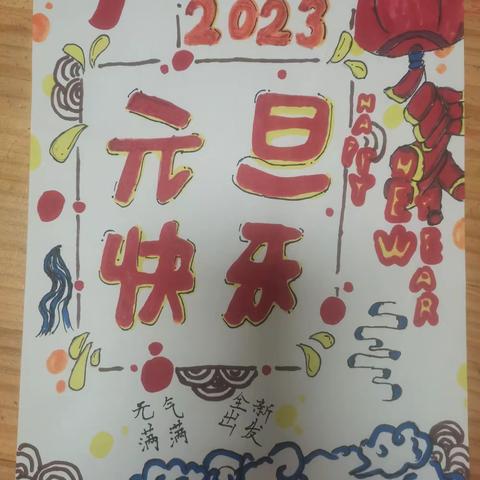 2023
元旦
快乐
HAPPY
NEW
YEAR
元气
满满
全新
出发